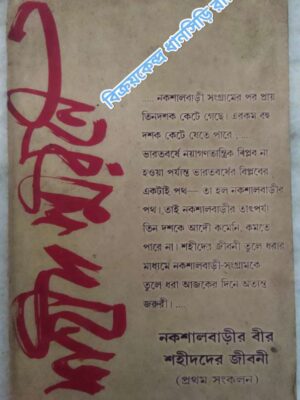 বিক্রয়কেন্দ্র ধানসিড়ি
শহীদ স্মরণে
.... নকশালবাড়ী সংগ্রামের পর প্রায়
তিনদশক কেটে গেছে। এরকম বহু
দশক কেটে যেতে পারে ; ....
ভারতবর্ষে নয়াগণতান্ত্রিক বিপ্লব না
হওয়া পর্যন্ত ভারতবর্ষের বিপ্লবের
একটাই পথ— তা হল নকশালবাড়ীর
পথ। তাই নকশালবাড়ীর তাৎপর্য
তিন দশকে আদৌ কমেনি, কমতে
পারে না। শহীদের জীবনী তুলে ধরার
মাধ্যমে নকশালবাড়ী-সংগ্রামকে
তুলে ধরা আজকের দিনে অত্যন্ত
জরুরী। ....
নকশালবাড়ীর বীর
শহীদদের জীবনী
(প্রথম সংকলন)